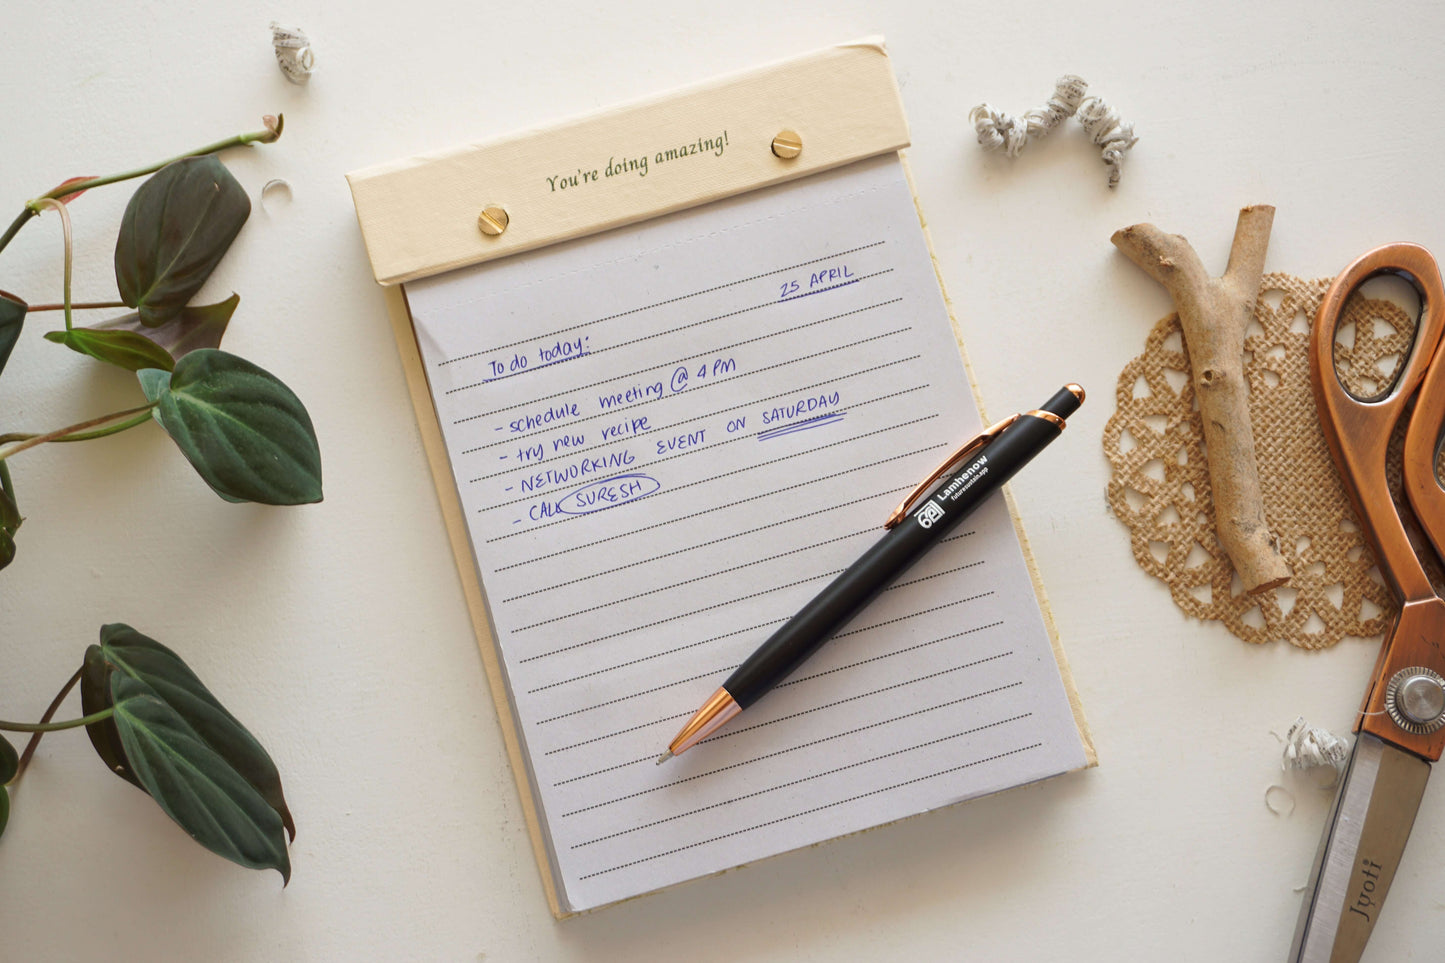 You're doing amazing!
25 APRIL
To do today:
- schedule meeting @ 4 PM
- try new recipe
- NETWORKING EVENT ON SATURDAY
- CALL SURESH
Lamhenow
futuresustain.app
Jyoti